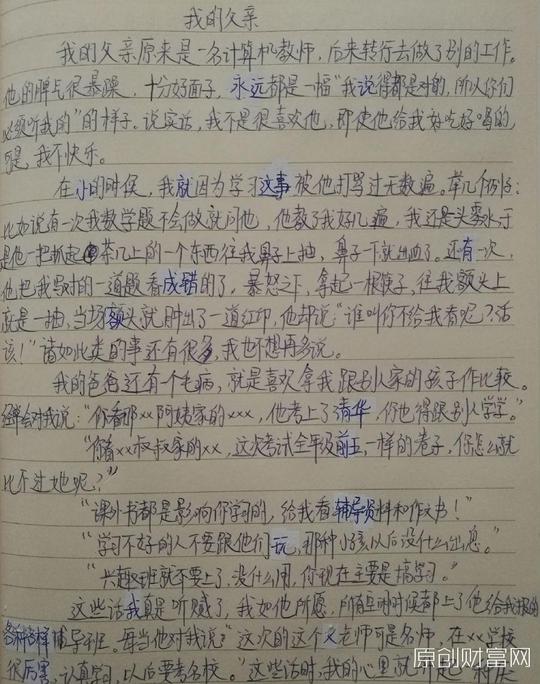 我的父亲
我的父亲原来是一名计算机教师，后来转行去做了别的工作。
他的脾气很暴躁，十分好面子，永远都是一幅“我说得都是对的，所以你们
必须听我的”的样子。说实话，我不是很喜欢他，即使他给我好吃好喝的，
可是，我不快乐。
在小的时候，我就因为学习这事被他打骂过无数遍。举几个例子：
比如说有一次我数学题不会做就问他，他教了我好几遍，我还是头雾水，于
是他一把抓起茶几上的一个东西往我鼻子上抽，鼻子一下就出血了。还有一次，
他把我写对的一道题看成错的了，暴怒之下，拿起一根筷子，往我额头上
就是一抽，当场额头就肿出了一道红印，他却说：“谁叫你不给我看呢？活
该！”诸如此类的事还有很多，我也不想再多说。
我的爸爸还有个毛病，就是喜欢拿我跟别人家的孩子作比较。
经常会对我说：“你看那××阿姨家的×××，他考上了清华，你也得跟别人学学。”
“你看××叔叔家的××，这次考试全年级前五，一样的卷子，你怎么就
比不过她呢？”
“课外书都是影响你学习的，给我看辅导资料和作文书！”
“学习不好的人不要跟他们玩，那种小孩以后没什么出息。”
“兴趣班就不要上了，没什么用，你现在主要是搞学习。”
这些话我真是听腻了，我如他所愿，所有空闲时候都上了他给我报的
各种各样辅导班。每当他对我说：“这次的这个×老师可是名师，在××学校
很厉害，认真学习，以后要考名校。”这些话时，我的心里就
原创财富网